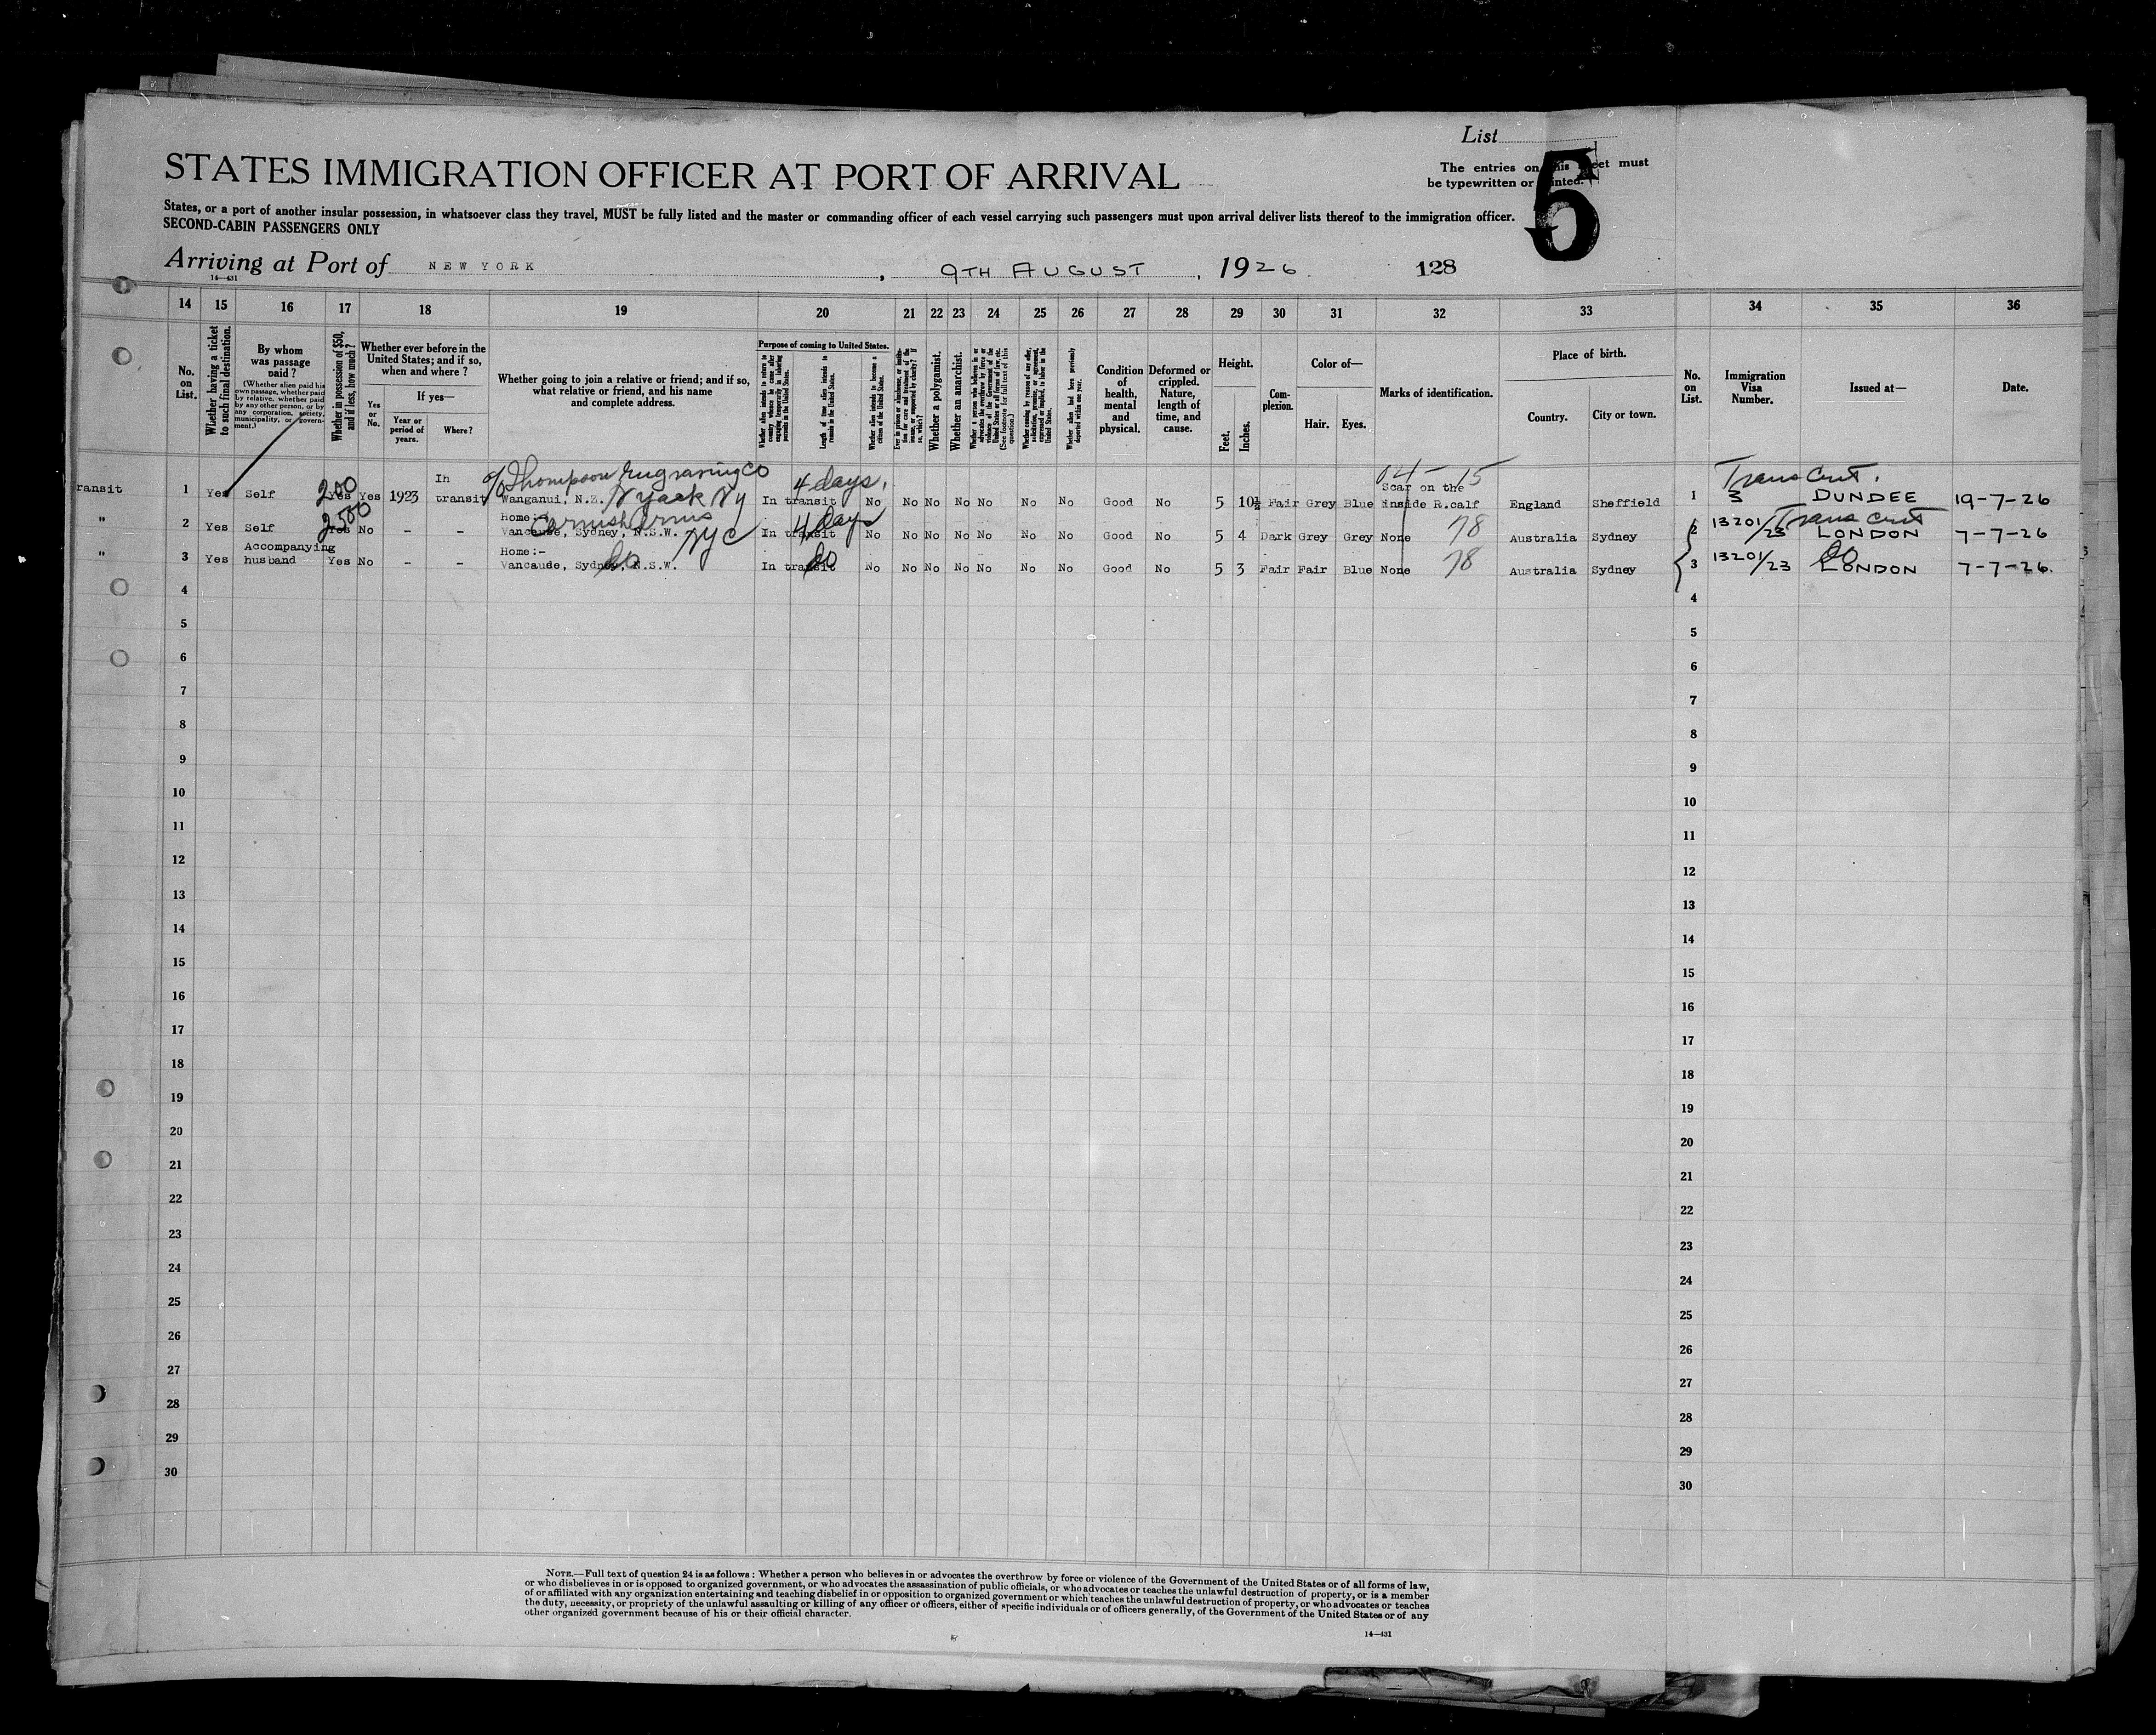 List
The entries on this sheet must
be typewritten or printed.
5
STATES IMMIGRATION OFFICER AT PORT OF ARRIVAL
States, or a port of another insular possession, in whatsoever class they travel, MUST be fully listed and the master or commanding officer of each vessel carrying such passengers must upon arrival deliver lists thereof to the immigration officer.
SECOND-CABIN PASSENGERS ONLY
Arriving at Port of NEW YORK, 9TH AUGUST, 1926. 128
14—431
14 15 16 17 18 19 20 21 22 23 24 25 26 27 28 29 30 31 32 33 34 35 36
No. on List.
Whether having a ticket to such final destination.
By whom was passage paid?
(Whether alien paid his own passage, whether paid by relative, whether paid by any other person, or by any corporation, society, municipality, or government.)
Whether in possession of $50, and if less, how much?
Whether ever before in the United States; and if so, when and where?
Yes or No.
If yes—
Year or period of years.
Where?
Whether going to join a relative or friend; and if so, what relative or friend, and his name and complete address.
Purpose of coming to United States.
Whether alien intends to return to country whence he came after engaging temporarily in laboring pursuits in the United States.
Length of time alien intends to remain in the United States.
Whether alien intends to become a citizen of the United States.
Ever in prison or almshouse, or institution for care and treatment of the insane, or supported by charity? If so, which?
Whether a polygamist.
Whether an anarchist.
Whether a person who believes in or advocates the overthrow by force or violence of the Government of the United States or all forms of law, etc. (See footnote for full text of this question.)
Whether coming by reason of any offer, solicitation, promise, or agreement, expressed or implied, to labor in the United States.
Whether alien had been previously deported within one year.
Condition of health, mental and physical.
Deformed or crippled. Nature, length of time, and cause.
Height.
Feet.
Inches.
Complexion.
Color of—
Hair.
Eyes.
Marks of identification.
Place of birth.
Country.
City or town.
No. on List.
Immigration Visa Number.
Issued at—
Date.
c/o Thompson Engraving Co 4 days. 04 – 15 Trans Cert.
200 In Scar on the
ransit 1 Yes Self Yes Yes 1923 transit Wanganui, N.Z. Nyack NY In transit No No No No No No No Good No 5 10½ Fair Grey Blue inside R.calf England Sheffield 1 3 DUNDEE 19-7-26
2500 Home:- 4 days 78 Trans Cert
" 2 Yes Self Yes No – – Vancaude, Sydney, N.S.W. NYC In transit No No No No No No No Good No 5 4 Dark Grey Grey None Australia Sydney 2 13201/23 LONDON 7-7-26
Accompanying Home:- do do 78 do
" 3 Yes husband Yes No – – Vancaude, Sydney, N.S.W. In transit No No No No No No No Good No 5 3 Fair Fair Blue None Australia Sydney 3 13201/23 LONDON 7-7-26.
4 4
5 5
6 6
7 7
8 8
9 9
10 10
11 11
12 12
13 13
14 14
15 15
16 16
17 17
18 18
19 19
20 20
21 21
22 22
23 23
24 24
25 25
26 26
27 27
28 28
29 29
30 30
NOTE.—Full text of question 24 is as follows: Whether a person who believes in or advocates the overthrow by force or violence of the Government of the United States or of all forms of law,
or who disbelieves in or is opposed to organized government, or who advocates the assassination of public officials, or who advocates or teaches the unlawful destruction of property, or is a member
of or affiliated with any organization entertaining and teaching disbelief in or opposition to organized government or which teaches the unlawful destruction of property, or who advocates or teaches
the duty, necessity, or propriety of the unlawful assaulting or killing of any officer or officers, either of specific individuals or of officers generally, of the Government of the United States or of any
other organized government because of his or their official character.
14—431